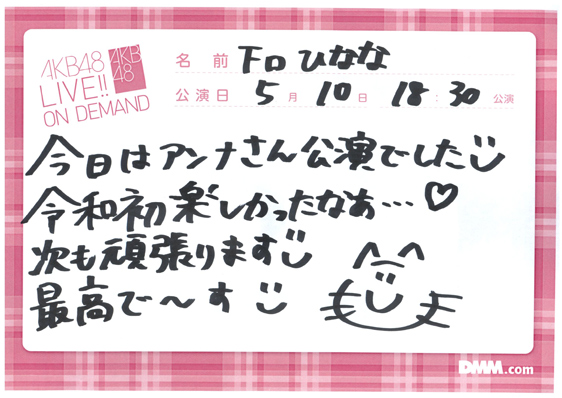 AKB48
LIVE!!
ON DEMAND
AKB
48
名前 下口ひなな
公演日 5月10日 18:30公演
今日はアンナさん公演でした
令和初楽しかったなぁ…♡
次も頑張ります
最高で〜す
DMM.com